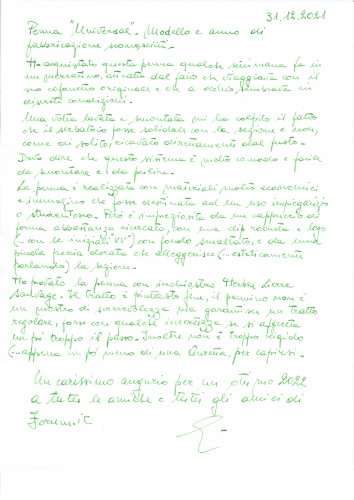 31.12.2021
Penna "Universal". Modello e anno di
fabbricazione sconosciuti.
Ho acquistato questa penna qualche settimana fa in
un mercatino, attirato dal fatto che viaggiava con il
suo cofanetto originale e che a occhio sembrava in
discrete condizioni.
Una volta lavata e smontata mi ha colpito il fatto
che il serbatoio fosse solidale con la sezione e non,
come di solito, ricavato direttamente dal fusto.
Devo dire che questo sistema è molto comodo e facile
da smontare e da pulire.
La penna è realizzata con materiali molto economici
e immagino che fosse destinata ad un uso impiegatizio
o studentesco. Però è impreziosita da un cappuccio di
forma abbastanza ricercata, con una clip robusta e logo
(...con le iniziali VV) con fondo smaltato, e da una
piccola fascia dorata che alleggerisce (...esteticamente
parlando) la sezione.
Ho provato la penna con inchiostro Herbin Lierre
Sauvage. Se tratto è piuttosto fine, il pennino non è
un mostro di scorrevolezza ma garantisce un tratto
regolare, forse con qualche incertezza se si affretta
un po' troppo il passo. Inoltre non è troppo rigido
(...appena un po' meno di una Aurora, per capirsi).
Un carissimo augurio per un ottimo 2022
a tutte le amiche e tutti gli amici di
Forum.it